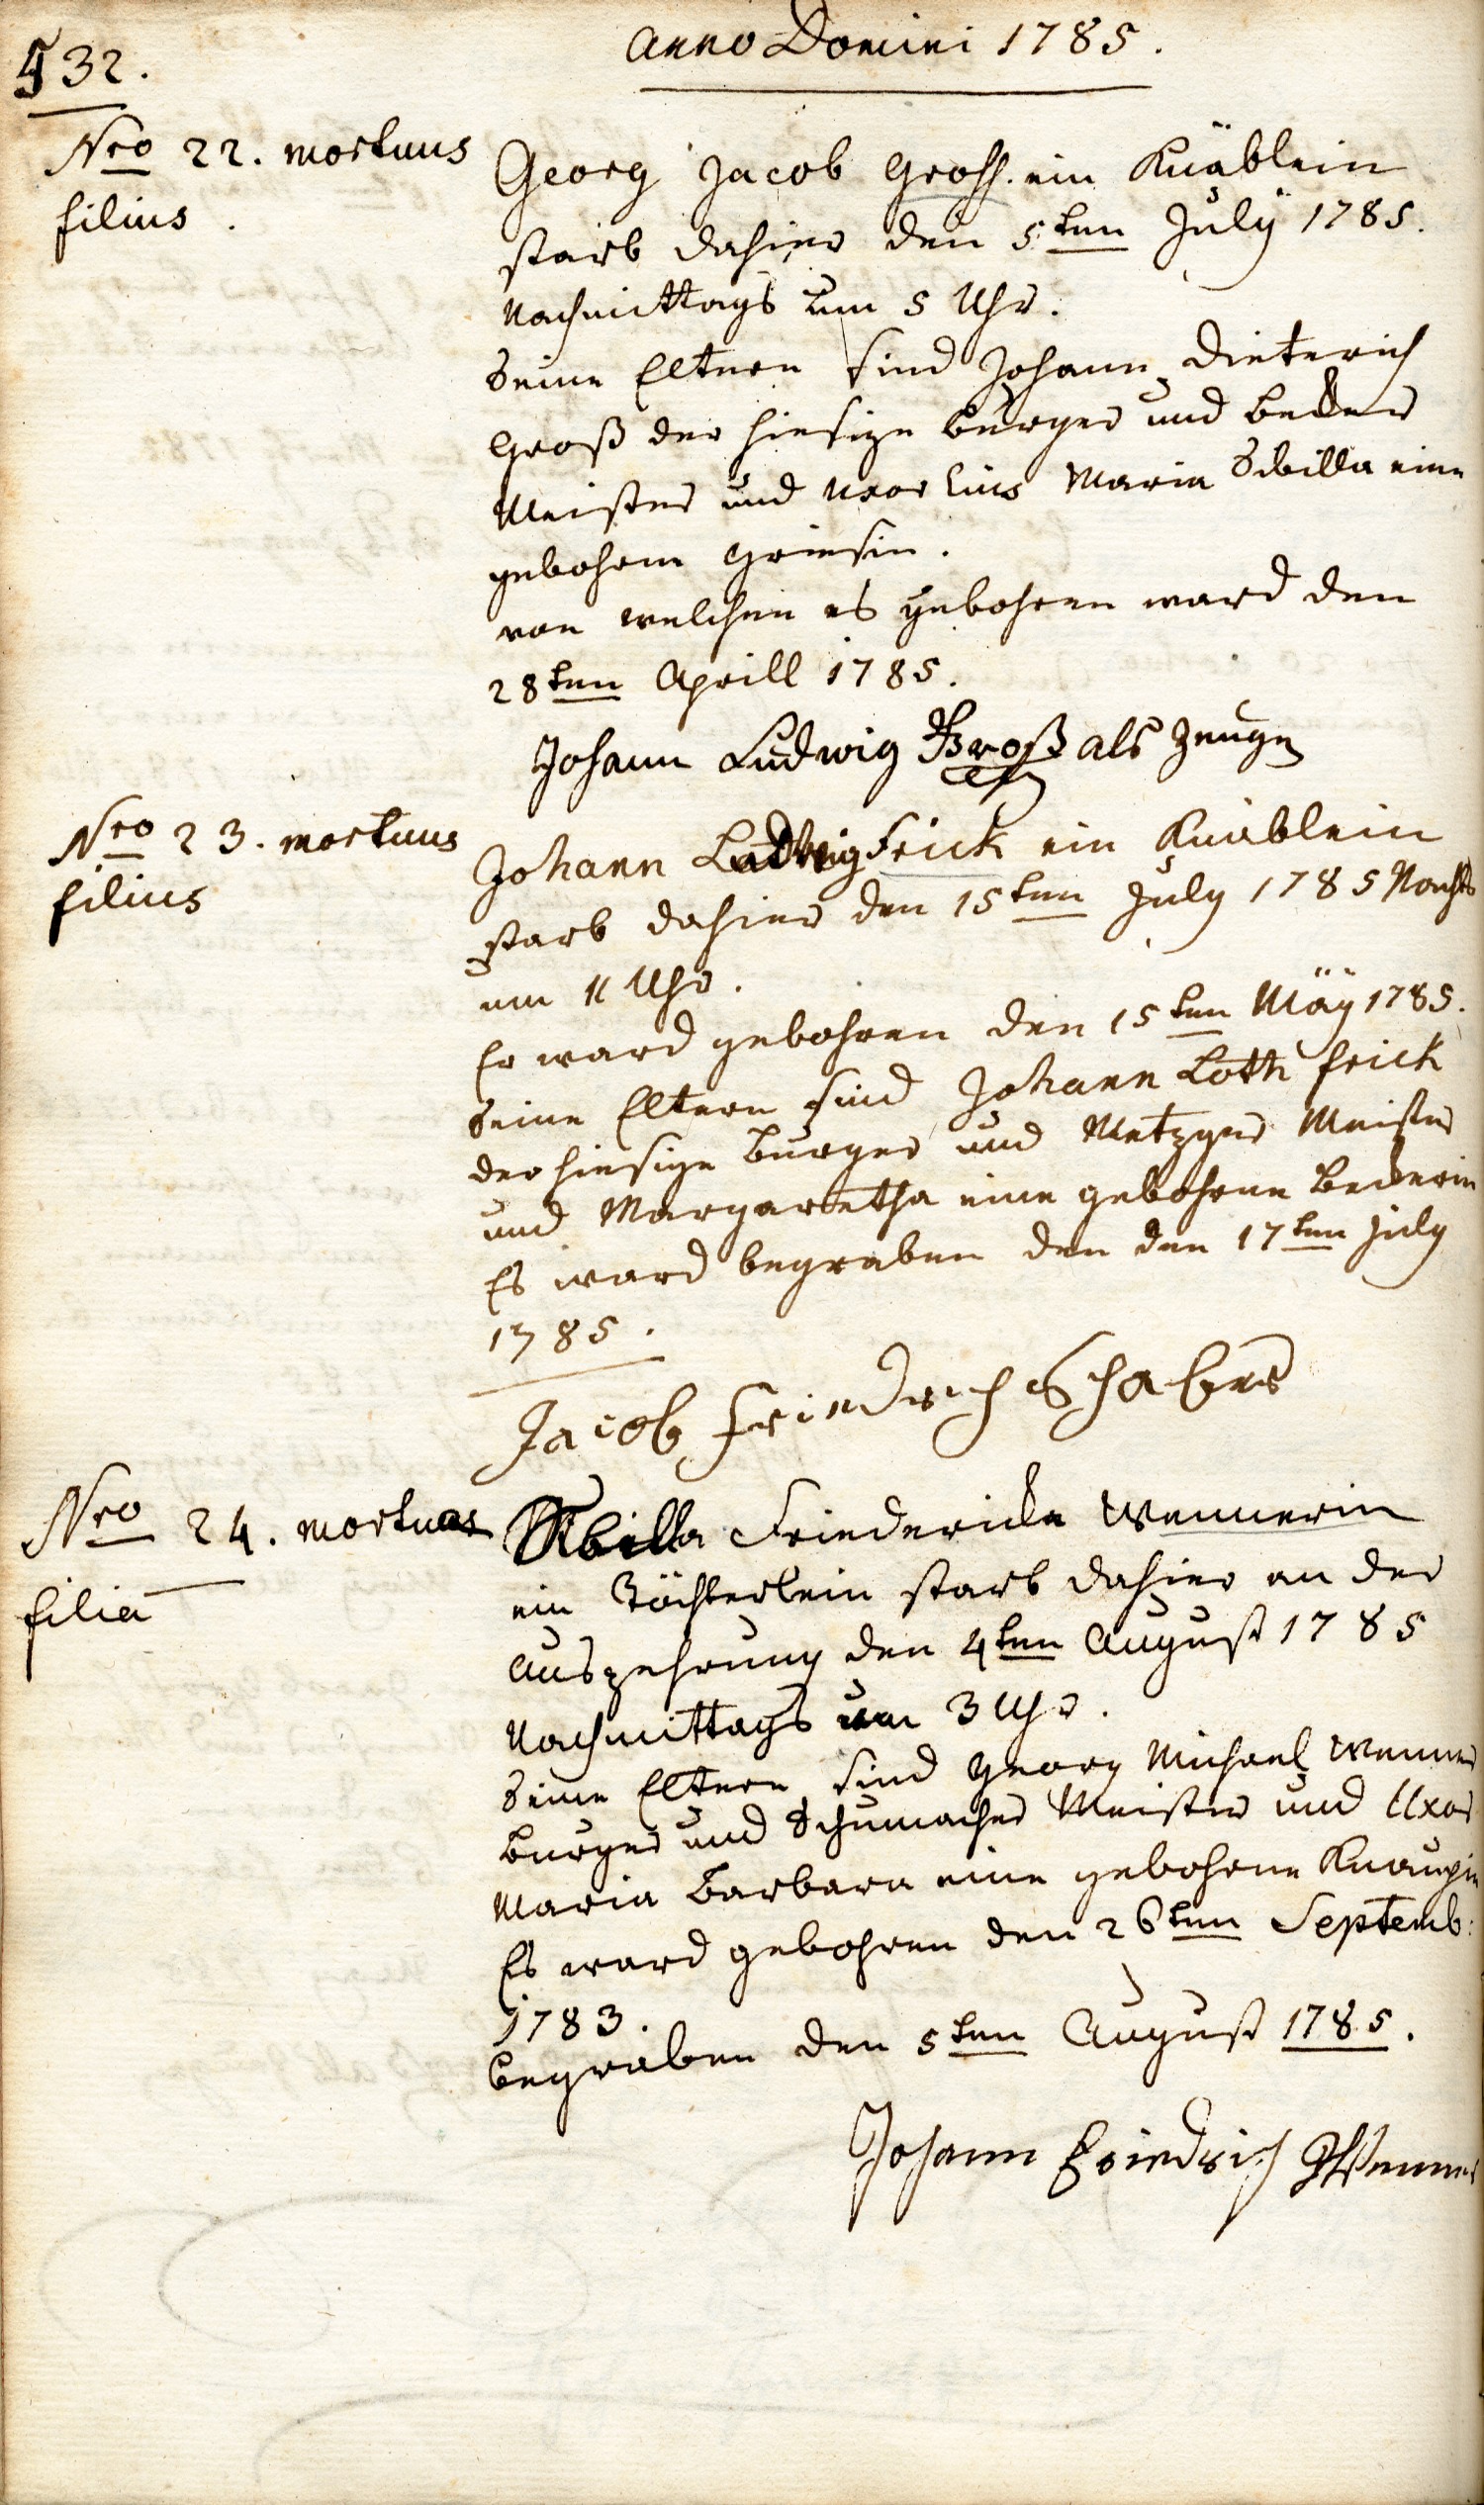 532.
Anno Domini 1785.
Nro 22. mortuus
filius.
Georg Jacob Groß. ein Knäblein
starb dahier den 5ten Julÿ 1785.
Nachmittags um 5 Uhr.
Seine Eltern sind Johann Dieterich
Groß der hiesige burger und becker
Meister und uxor Eius Maria Sibilla eine
gebohrne Griesin.
von welchen es gebohren ward den
28ten Aprill 1785.
Johann Ludwig Groß als Zeuge
Nro 23. mortuus
filius
Johann Ludwig Frick ein Knäblein
starb dahier den 15ten July 1785 Nachts
um 11 Uhr.
Er ward gebohren den 15ten Mäÿ 1785.
Seine Eltern sind Johann Loth Frick
der hiesige burger und Metzger Meister
und Margaretha eine gebohrne Beckerin
Es ward begraben den den 17ten July
1785.
Jacob Friedrich Schaber
Nro 24. mortua
filia
Sibilla Friedericka Wennerin
ein Töchterlein starb dahier an der
Auszehrung den 4ten August 1785
Nachmittags um 3 Uhr.
Seine Eltern sind Georg Michael Wenner
burger und Schumacher Meister und Uxor
Maria Barbara eine gebohrne Knaupin
Es ward gebohren den 26ten Septemb:
1783.
begraben den 5ten August 1785.
Johann Friedrich Wenner